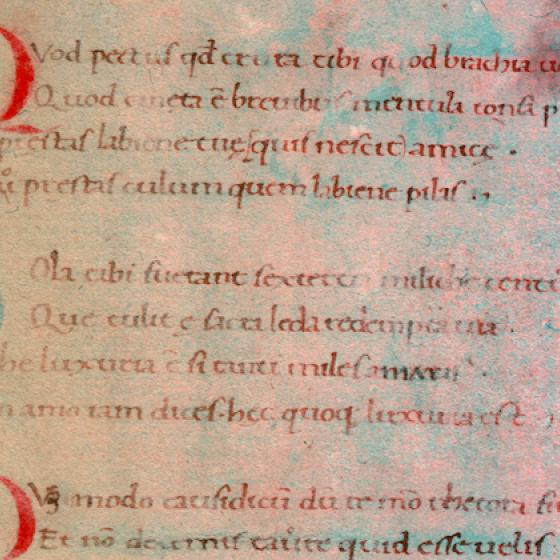 Vod pectus qđ crura tibi quod brachia
Quod cincta ē breuibus mentula tonsa p
prestas labiene tue (quis nescit) amice .
prestas culum quem labiene pilis .,
Ola tibi fuerant sestertia
Que tulit e sacra leda redempta uia .
luxuria ē si tanti
amo iam dices. hec quoq luxuria est
modo causidicū du te mō rhetora
Et nō decernis quid esse uelis